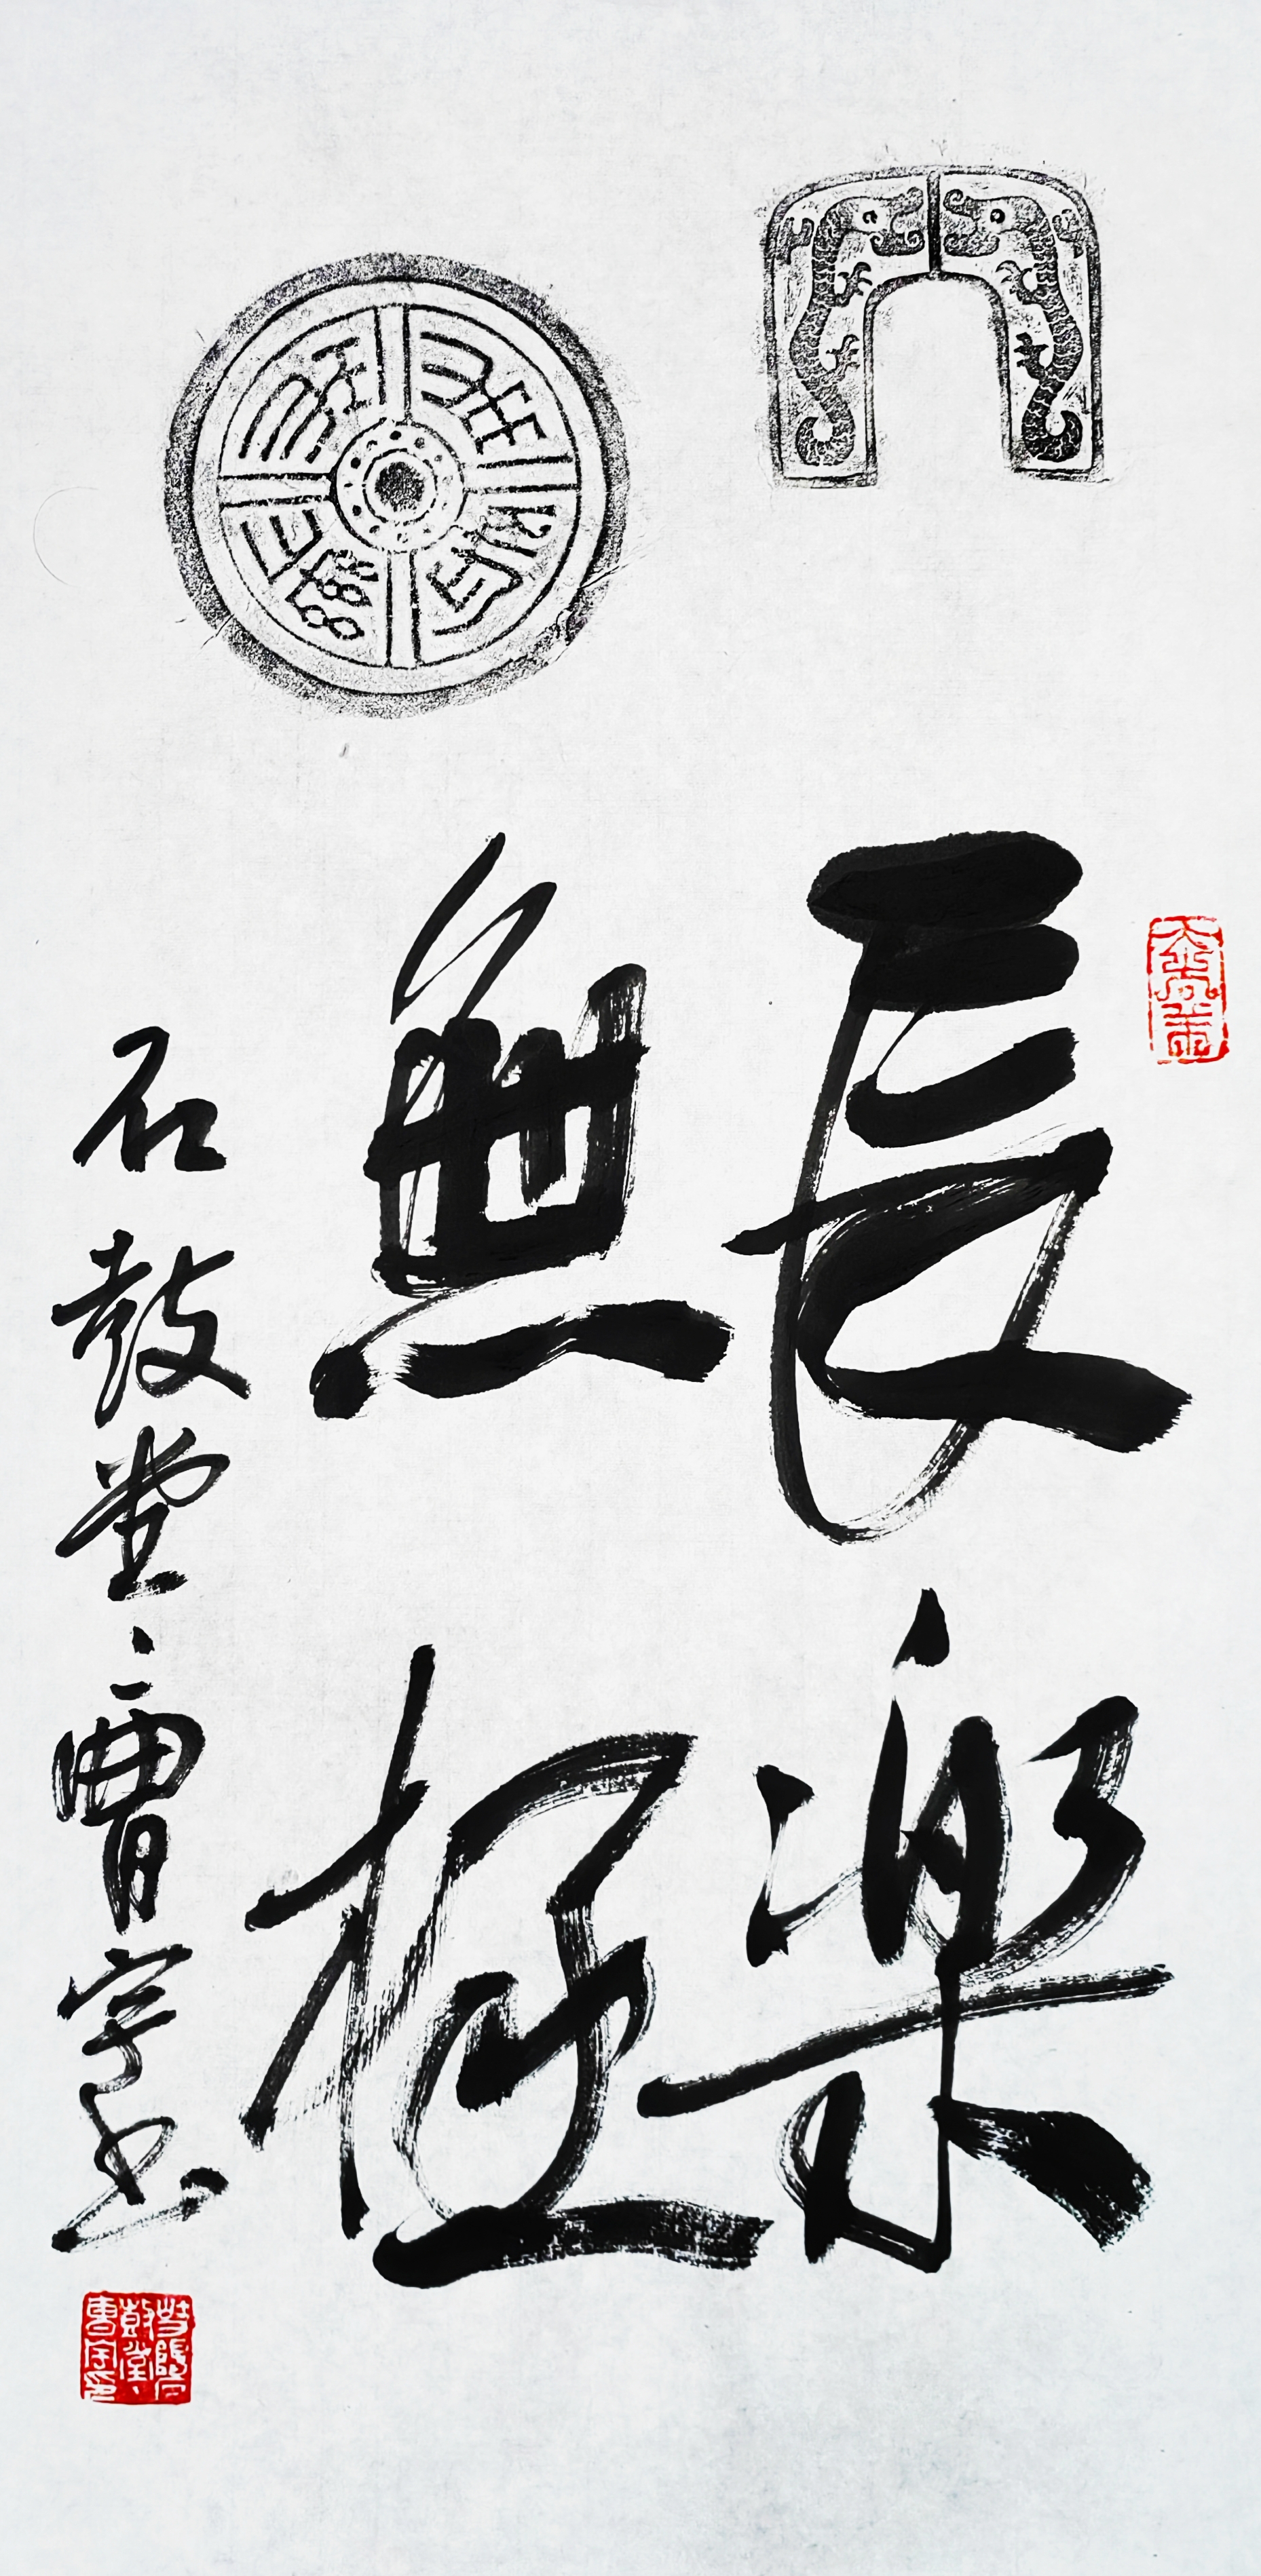 長樂
無極
石鼓堂曹宇书